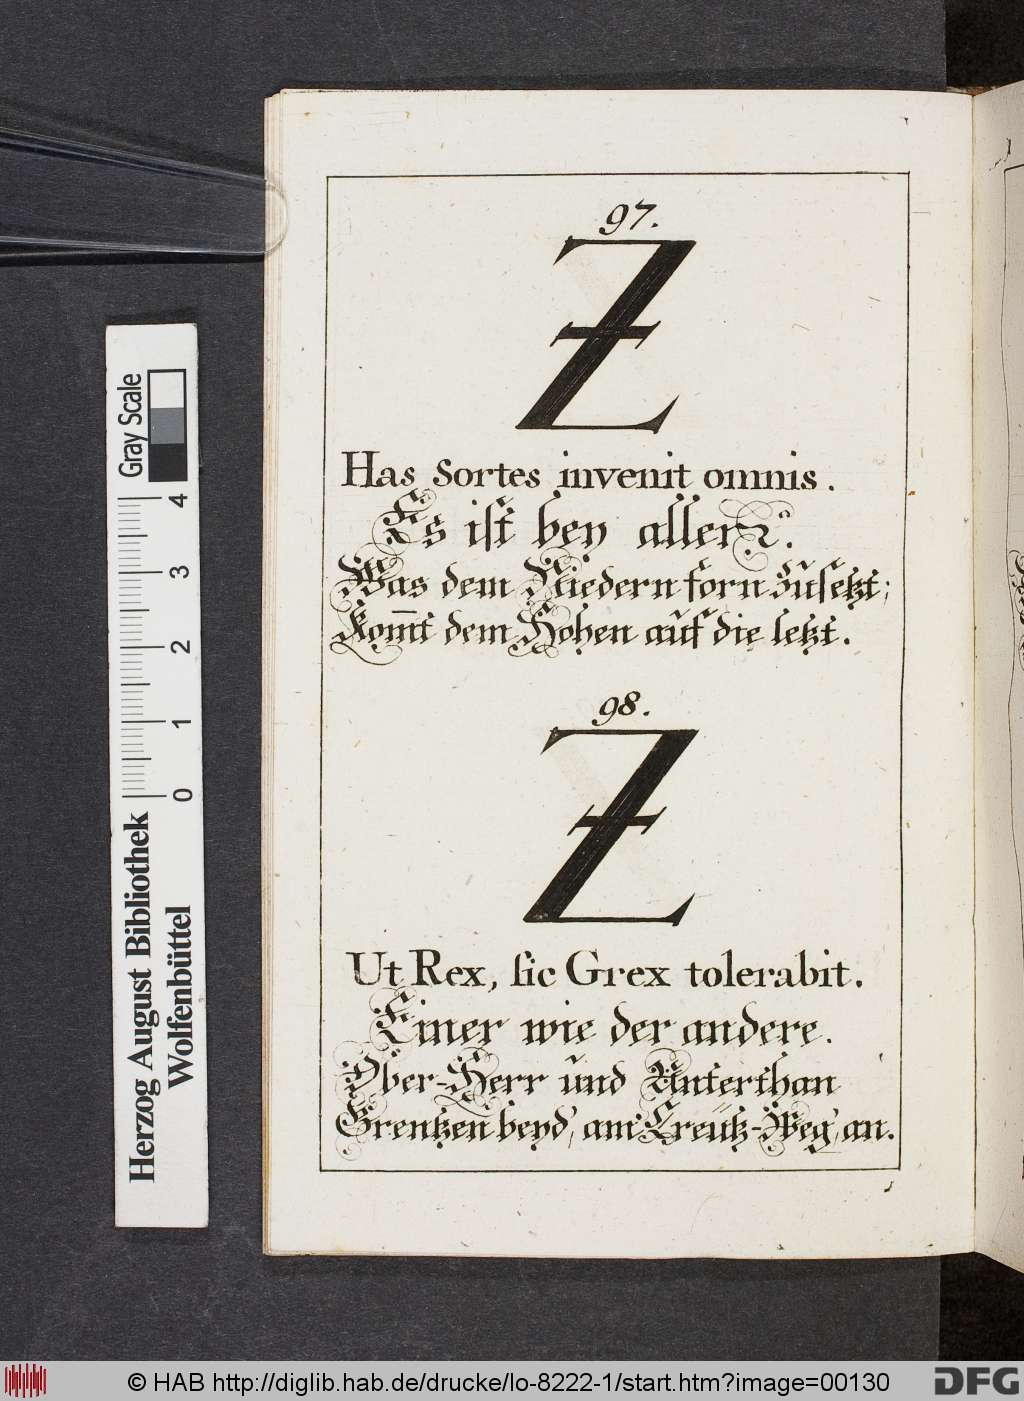 97.
Z
Has Sortes invenit omnis.
Es ist bey allen.
Was dem Niedern forn zusetzt;
Kom̅t dem Hohen auf die letzt.
98.
Z
Ut Rex, sic Grex tolerabit.
Einer wie der andere.
Ober-Herr und Unterthan
Grentzen beyd, am Creütz-Weg, an.
Gray Scale
4
3
2
1
0
Herzog August Bibliothek
Wolfenbüttel
© HAB http://diglib.hab.de/drucke/lo-8222-1/start.htm?image=00130
DFG